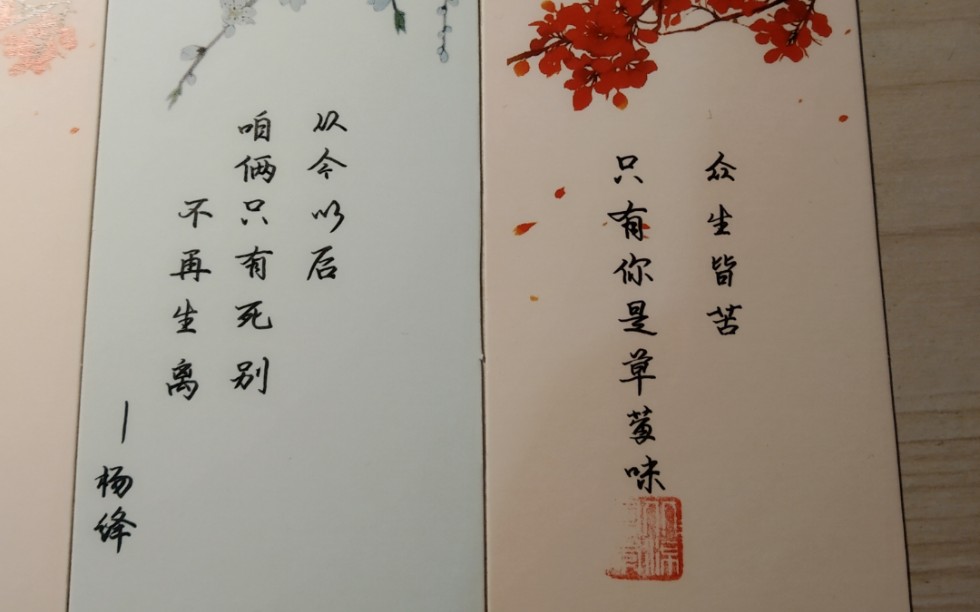 从今以后
咱俩只有死别
不再生离
—杨绛
众生皆苦
只有你是草莓味